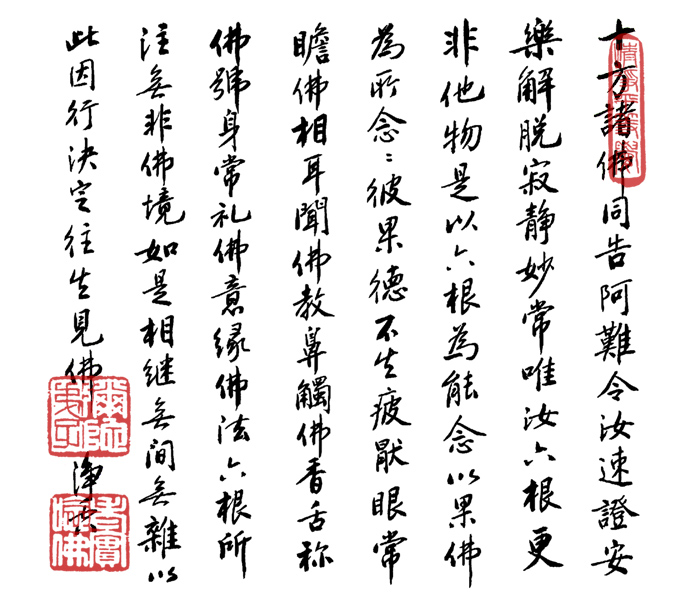 十方諸佛同告阿難令汝速證安
樂解脫寂靜妙常唯汝六根更
非他物是以六根為能念以果佛
為所念〻彼果德不生疲厭眼常
瞻佛相耳聞佛教鼻觸佛香舌称
佛號身常礼佛意缘佛法六根所
注無非佛境如是相継無间無雜以
此因行决定往生見佛
淨雲